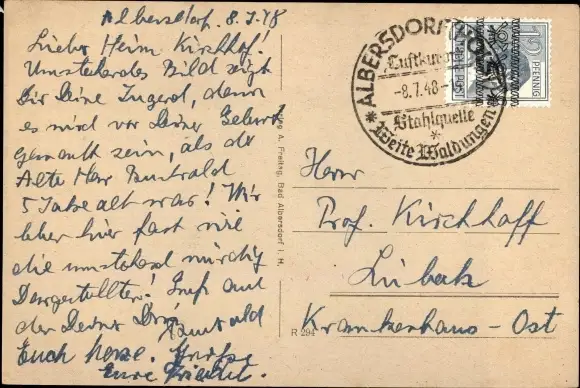 Albersdorf, 8.7.48
Lieber Heim Kirchhof!
Umstehendes Bild zeigt
Dir Deine Jugend, denn
es wird vor Deiner Geburt
gemalt sein, als der
Alte Herr
5 Jahre alt war! Wir
leben hier fast wie
die umstehend würdig
Dargestellten! Gruß auch
der Deine
Euch herzl. Grüße
Eure
Verlag A. Freitag, Bad Albersdorf i. H.
R 294
ALBERSDORF (HOLST)
Luftkurort
-8.7.48-
Stahlquelle
Weite Waldungen
12 PFENNIG
DEUTSCHE POST
Herrn
Prof. Kirchhoff
Lübeck
Krankenhaus-Ost